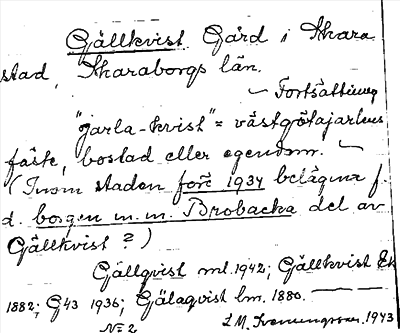 Gällkvist Gård i Skara
stad, Skaraborgs län.
~ Fortsättning
"jarla-kvist" = västgötajarlens
fäste, bostad eller egendom. ~
(Inom staden före 1934 belägna f.
d. borgen m.m. Brobacka del av
Gällkvist?)
Gällqvist ml. 1942; Gällkvist Ek
1882; G43 1936; Gälaqvist lm. 1880.
No 2 1943